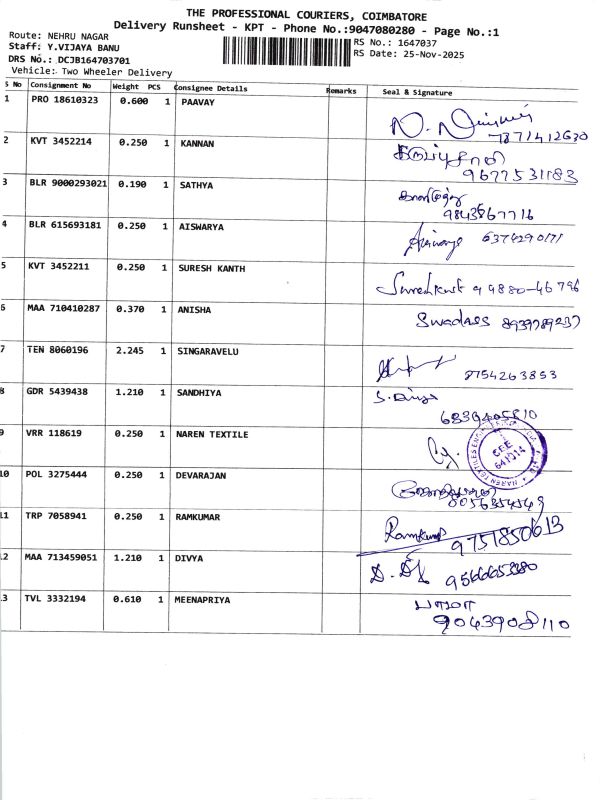 THE PROFESSIONAL COURIERS, COIMBATORE
Delivery Runsheet - KPT - Phone No.:9047080280 - Page No.:1
Route: NEHRU NAGAR
RS No.: 1647037
Staff: Y.VIJAYA BANU
RS Date: 25-Nov-2025
DRS No.: DCJB164703701
Vehicle: Two Wheeler Delivery
S No Consignment No Weight PCS Consignee Details Remarks Seal & Signature
1 PRO 18610323 0.600 1 PAAVAY
2 KVT 3452214 0.250 1 KANNAN
9677531183
3 BLR 9000293021 0.190 1 SATHYA
9843567716
4 BLR 615693181 0.250 1 AISWARYA
5 KVT 3452211 0.250 1 SURESH KANTH
99880-46796
6 MAA 710410287 0.370 1 ANISHA
8939789237
7 TEN 8060196 2.245 1 SINGARAVELU
8754263853
8 GDR 5439438 1.210 1 SANDHIYA
9 VRR 118619 0.250 1 NAREN TEXTILE
CBE
641014
10 POL 3275444 0.250 1 DEVARAJAN
11 TRP 7058941 0.250 1 RAMKUMAR Ramkumar 9751850613
12 MAA 713459051 1.210 1 DIVYA
13 TVL 3332194 0.610 1 MEENAPRIYA
9043908110